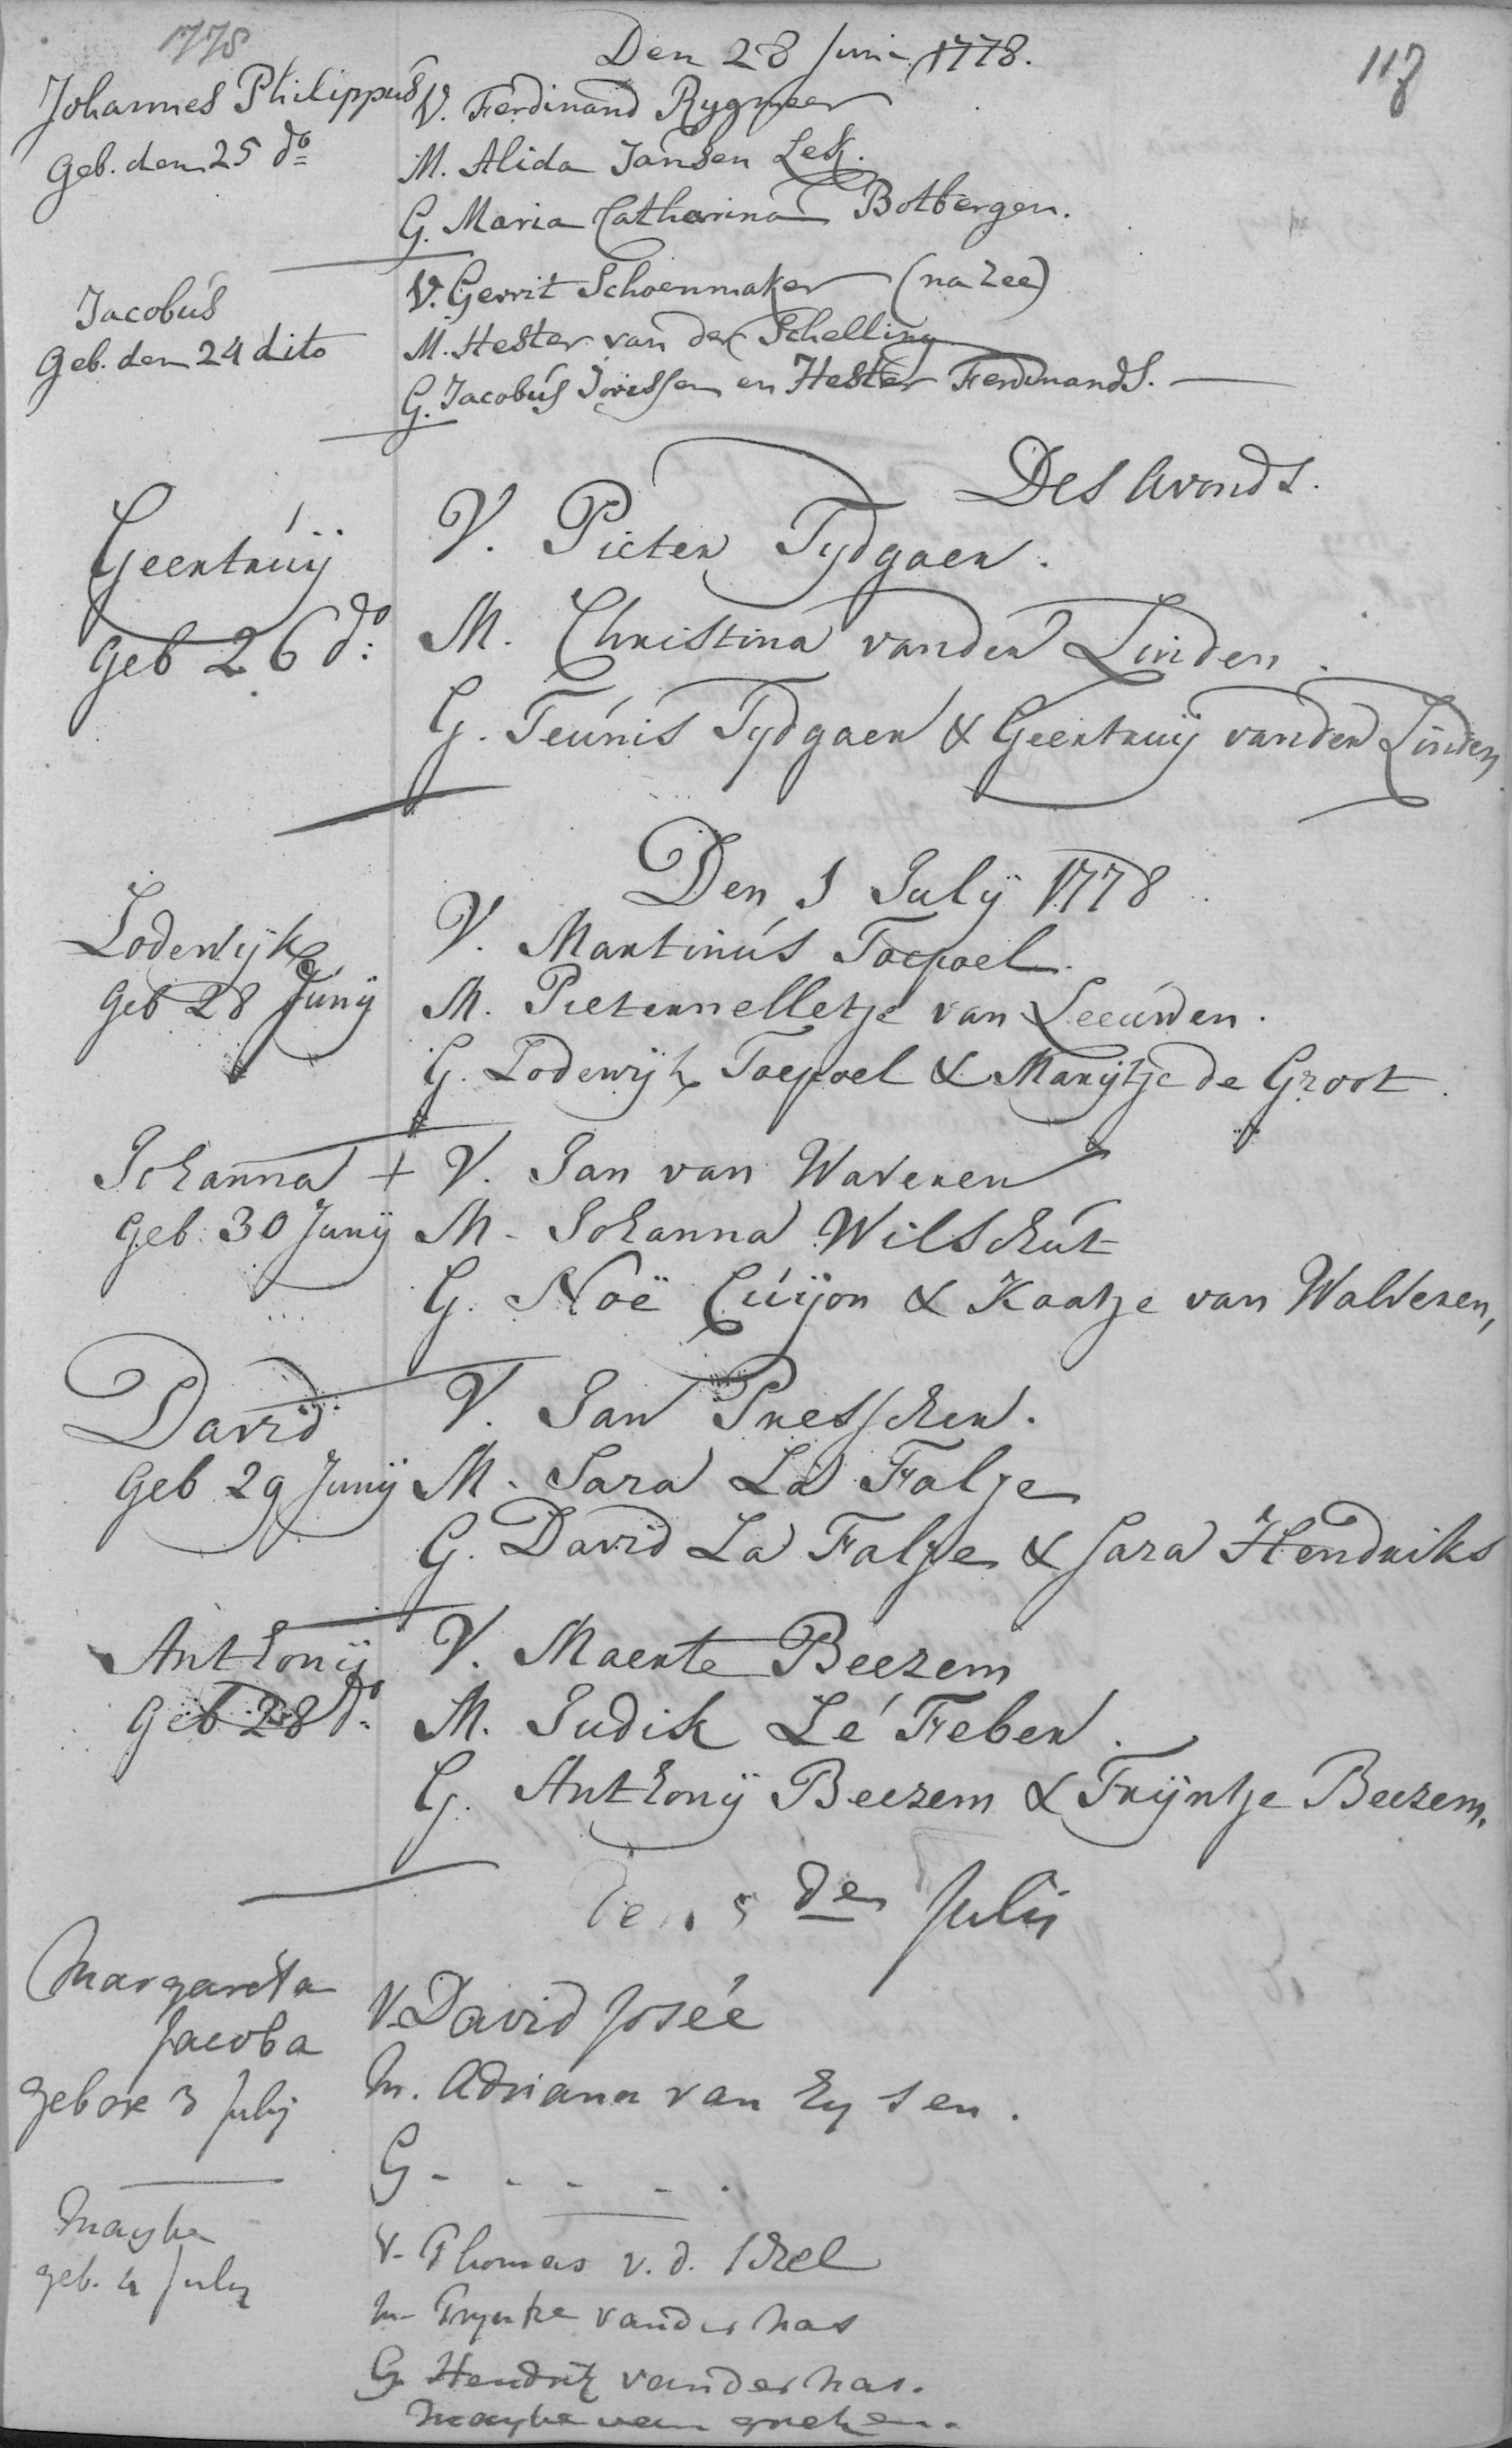 1778
Den 28 Juni 1778.
117
Johannes Philippus
Geb. den 25 do
V. Ferdinand Rygmeer
M. Alida Jansen Lek.
G. Maria Catharina Botbergen.
Jacobus
Geb. den 24 dito
V. Gerrit Schoenmaker (na Zee)
M. Hester van der Schelling
G. Jacobus Jorissen en Hester Ferdinands.
Des Avonds.
Geertruij
Geb 26 do:
V. Pieter Tydgaer.
M. Christina vander Linden.
G. Teunis Tydgaer & Geertruij vander Linden
Den 1 Julij 1778
Lodewijk
Geb 28 Junij
V. Martinus Toepoel.
M. Pieternelletje van Leeuwen.
G. Lodewijk Toepoel & Marijtje de Groot.
Johanna +
Geb. 30 Junij
V. Jan van Waveren
M. Johanna Wilschut
G. Noë Cuijon & Kaatje van Walveren,
David
Geb 29 Junij
V. Jan Presscher.
M. Sara La Falje
G. David La Falje & Sara Hendriks
Anthonij
Geb 28 do.
V. Maerte Beezem
M. Judik Lé Feber.
G. Anthonij Beezem & Trijntje Beezem.
Den 5 den Julij
Margareta
Jacoba
gebore 3 July
V. David Josée
M. Adriana van Eysen.
G - - - - .
Maytie
geb. 4 July
V. Thomas v. d. Tkel
M. Tryntje vander has
G Hendrik vander has.
Maytie van